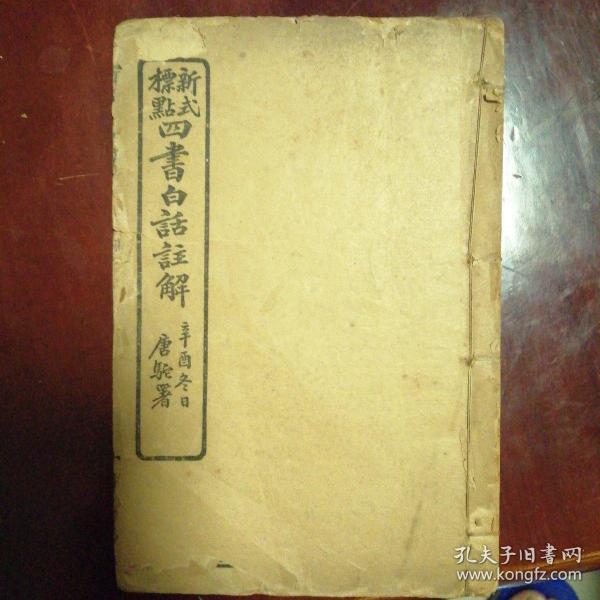 新式
標點
四書白話註解
辛酉冬日
唐駝署
孔夫子旧書网
www.kongfz.com